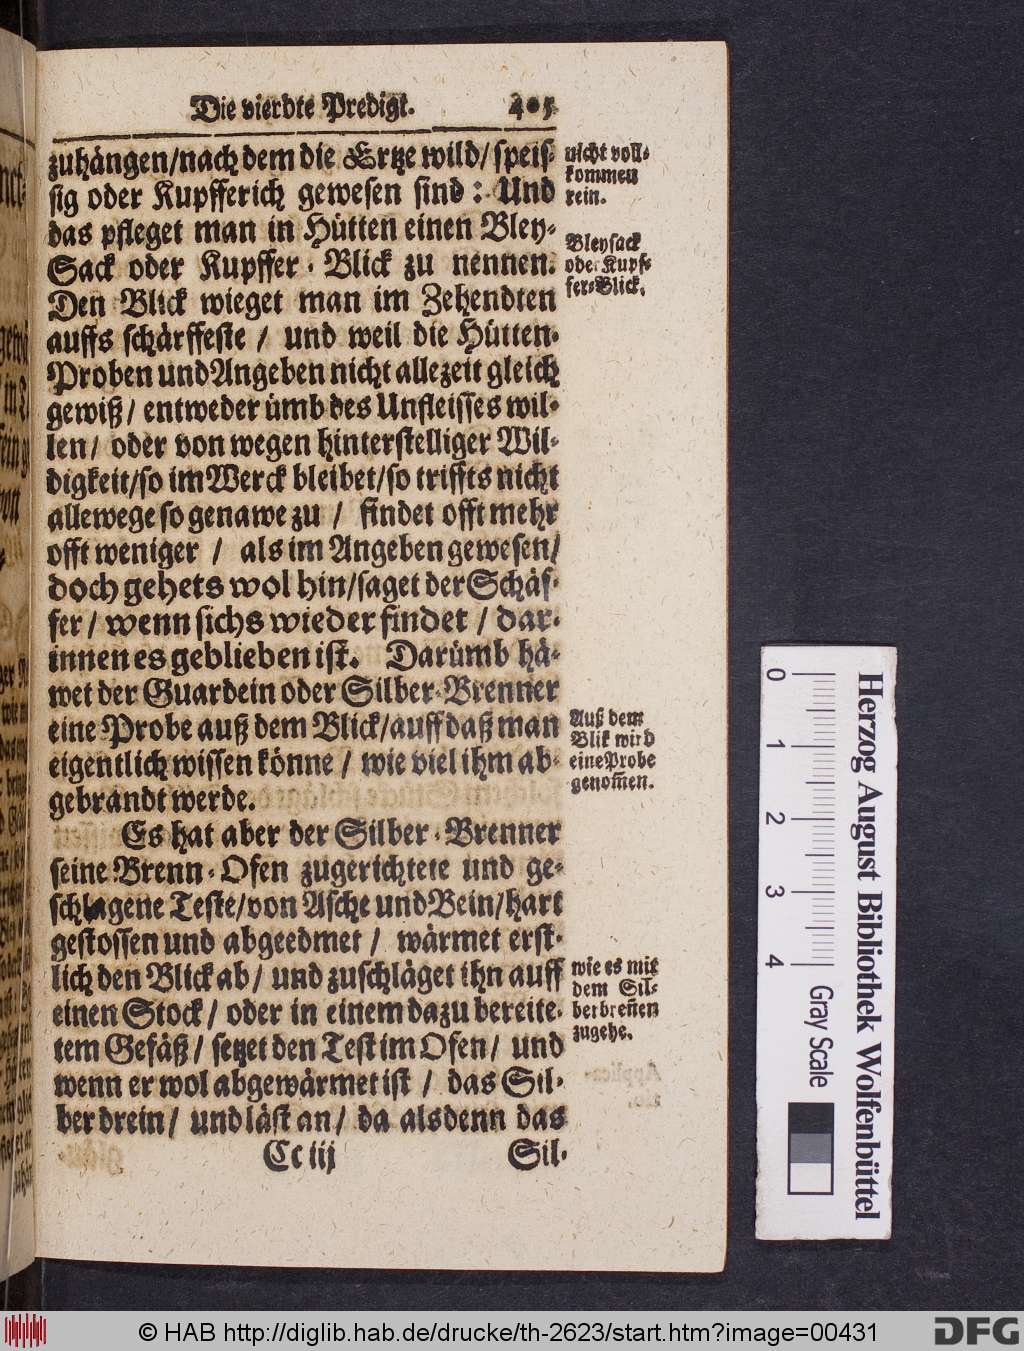 Die vierdte Predigt. 405
zuhängen/nach dem die Ertze wild/ speis-
sig oder Kupfferich gewesen sind: Und
das pfleget man in Hütten einen Bley-
Sack oder Kupffer-Blick zu nennen.
Den Blick wieget man im Zehendten
auffs schärffeste / und weil die Hütten-
Proben und Angeben nicht allezeit gleich
gewiß/ entweder ümb des Unfleisses wil-
len/ oder von wegen hinterstelliger Wil-
digkeit/so im Werck bleibet/so triffts nicht
allewege so genawe zu / findet offt mehr
offt weniger / als im Angeben gewesen/
doch gehets wol hin/saget der Schäf-
fer/ wenn sichs wieder findet / dar-
innen es geblieben ist. Darümb hä-
wet der Guardein oder Silber-Brenner
eine Probe auß dem Blick/auff daß man
eigentlich wissen könne / wie viel ihm ab-
gebrandt werde.
Es hat aber der Silber-Brenner
seine Brenn-Ofen zugerichtete und ge-
schlagene Teste/von Asche und Bein/hart
gestossen und abgeedmet / wärmet erst-
lich den Blick ab/ und zuschläget ihn auff
einen Stock/ oder in einem dazu bereite-
tem Gefäß/ setzet den Test im Ofen/ und
wenn er wol abgewärmet ist / das Sil-
ber drein/ und läst an/ da alsdenn das
Cc iij Sil-
nicht voll-
kommen
rein.
Bleysack
oder Kupf-
fer-Blick.
Auß dem
Blik wird
eine Probe
genom̃en.
wie es mit
dem Sil-
berbreñen
zugehe.
0 1 2 3 4
Gray Scale
Herzog August Bibliothek Wolfenbüttel
© HAB http://diglib.hab.de/drucke/th-2623/start.htm?image=00431
DFG